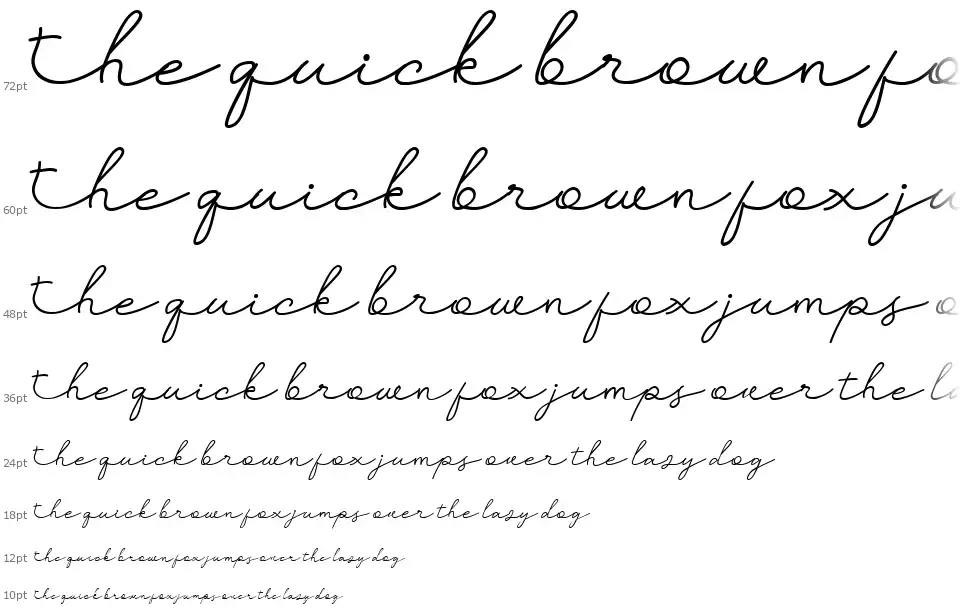 72pt the quick brown fo
60pt the quick brown fox ju
48pt the quick brown fox jumps o
36pt the quick brown fox jumps over the la
24pt the quick brown fox jumps over the lazy dog
18pt the quick brown fox jumps over the lazy dog
12pt the quick brown fox jumps over the lazy dog
10pt the quick brown fox jumps over the lazy dog